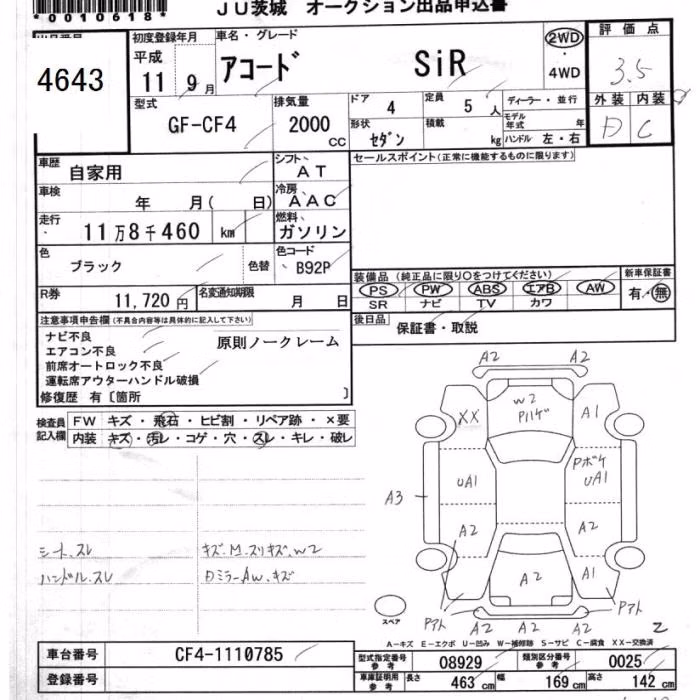 *0010618*
JU茨城 オークション出品申込書
出品番号
4643
初度登録年月
平成
11年 9月
車名・グレード
アコード SiR
2WD
・
4WD
評価点
3.5
外装 内装
D C
型式
GF-CF4
排気量
2000
CC
ドア
4
定員
5人
ディーラー・並行
形状
セダン
積載
kg
モデル年式 年
ハンドル 左・右
車歴
自家用
シフト
AT
セールスポイント(正常に機能するものに限ります)
車検
年 月( 日)
冷房
AAC
走行
11万8千460 km
燃料
ガソリン
色
ブラック
色替
色コード
B92P
R券
11,720円
名変通知期限
月 日
装備品(純正品に限り○をつけてください)
PS PW ABS エアB AW
SR ナビ TV カワ
新車保証書
有・無
後日品
保証書・取説
注意事項申告欄(不具合内容等は具体的に記入して下さい)
ナビ不良
エアコン不良
前席オートロック不良
運転席アウターハンドル破損
原則ノークレーム
修復歴 有〔箇所 〕
検査員記入欄
FW キズ・飛石・ヒビ割・リペア跡・×要
内装 キズ・汚レ・コゲ・穴・スレ・キレ・破レ
シートスレ
ハンドルスレ
キズ.M.スリキズ.W2
DミラーAW.キズ
A2 A2
W2
Pハゲ
XX A1
Pボケ
UA1
UA1
A3
A2 A2
A2
A1
Pアト Pアト
A2 A2 A2
スペア
A-キズ E-エクボ U-凹み W-補修跡 S-サビ C-腐食 XX-交換済
車台番号
CF4-1110785
登録番号
型式指定番号
参考
08929
類別区分番号
参考
0025
車庫証明用
参考
長さ 463 cm 幅 169 cm 高さ 142 cm